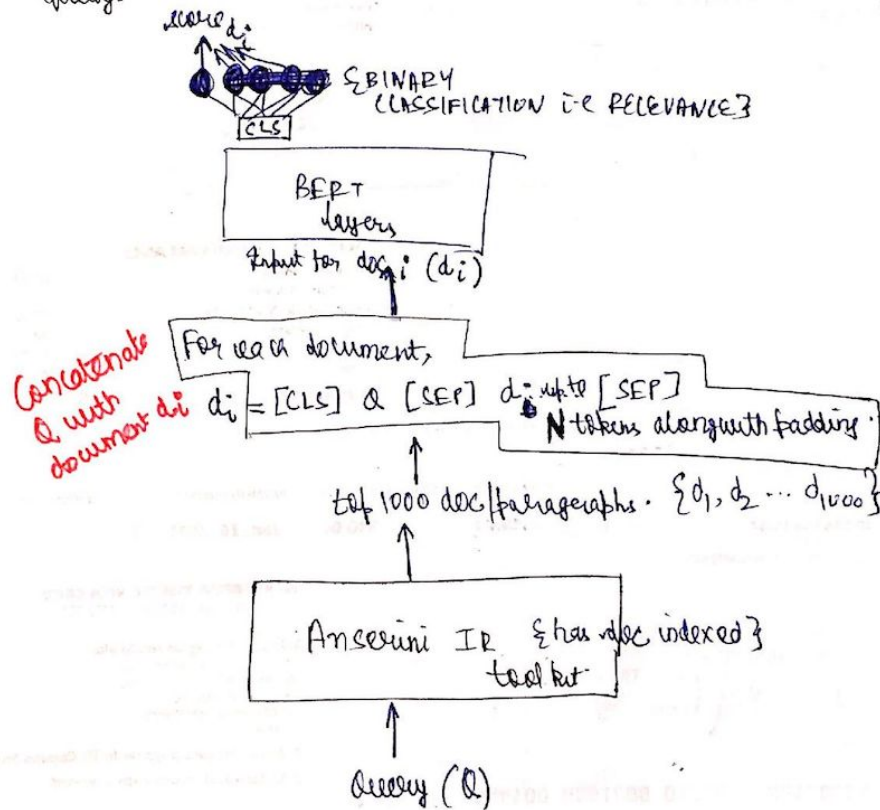 score di
{BINARY
CLASSIFICATION i-e RELEVANCE}
CLS
BERT
layers
Input for doc i (di)
For each document,
Concatenate
Q with
document di
di = [CLS] Q [SEP] di upto [SEP]
N tokens along with padding.
top 1000 doc/paragraphs. {d1, d2 ... d1000}
Anserini IR {has doc indexed}
toolkit
Query (Q)